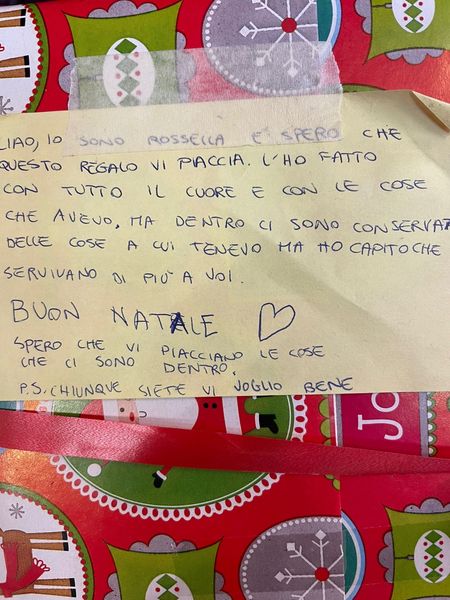 CIAO, IO SONO ROSSELLA E SPERO CHE
QUESTO REGALO VI PIACCIA. L'HO FATTO
CON TUTTO IL CUORE E CON LE COSE
CHE AVEVO, MA DENTRO CI SONO CONSERVAT
DELLE COSE A CUI TENEVO MA HO CAPITO CHE
SERVIVANO DI PIÙ A VOI.
BUON NATALE
SPERO CHE VI PIACCIANO LE COSE
CHE CI SONO DENTRO.
P.S. CHIUNQUE SIETE VI VOGLIO BENE
JO